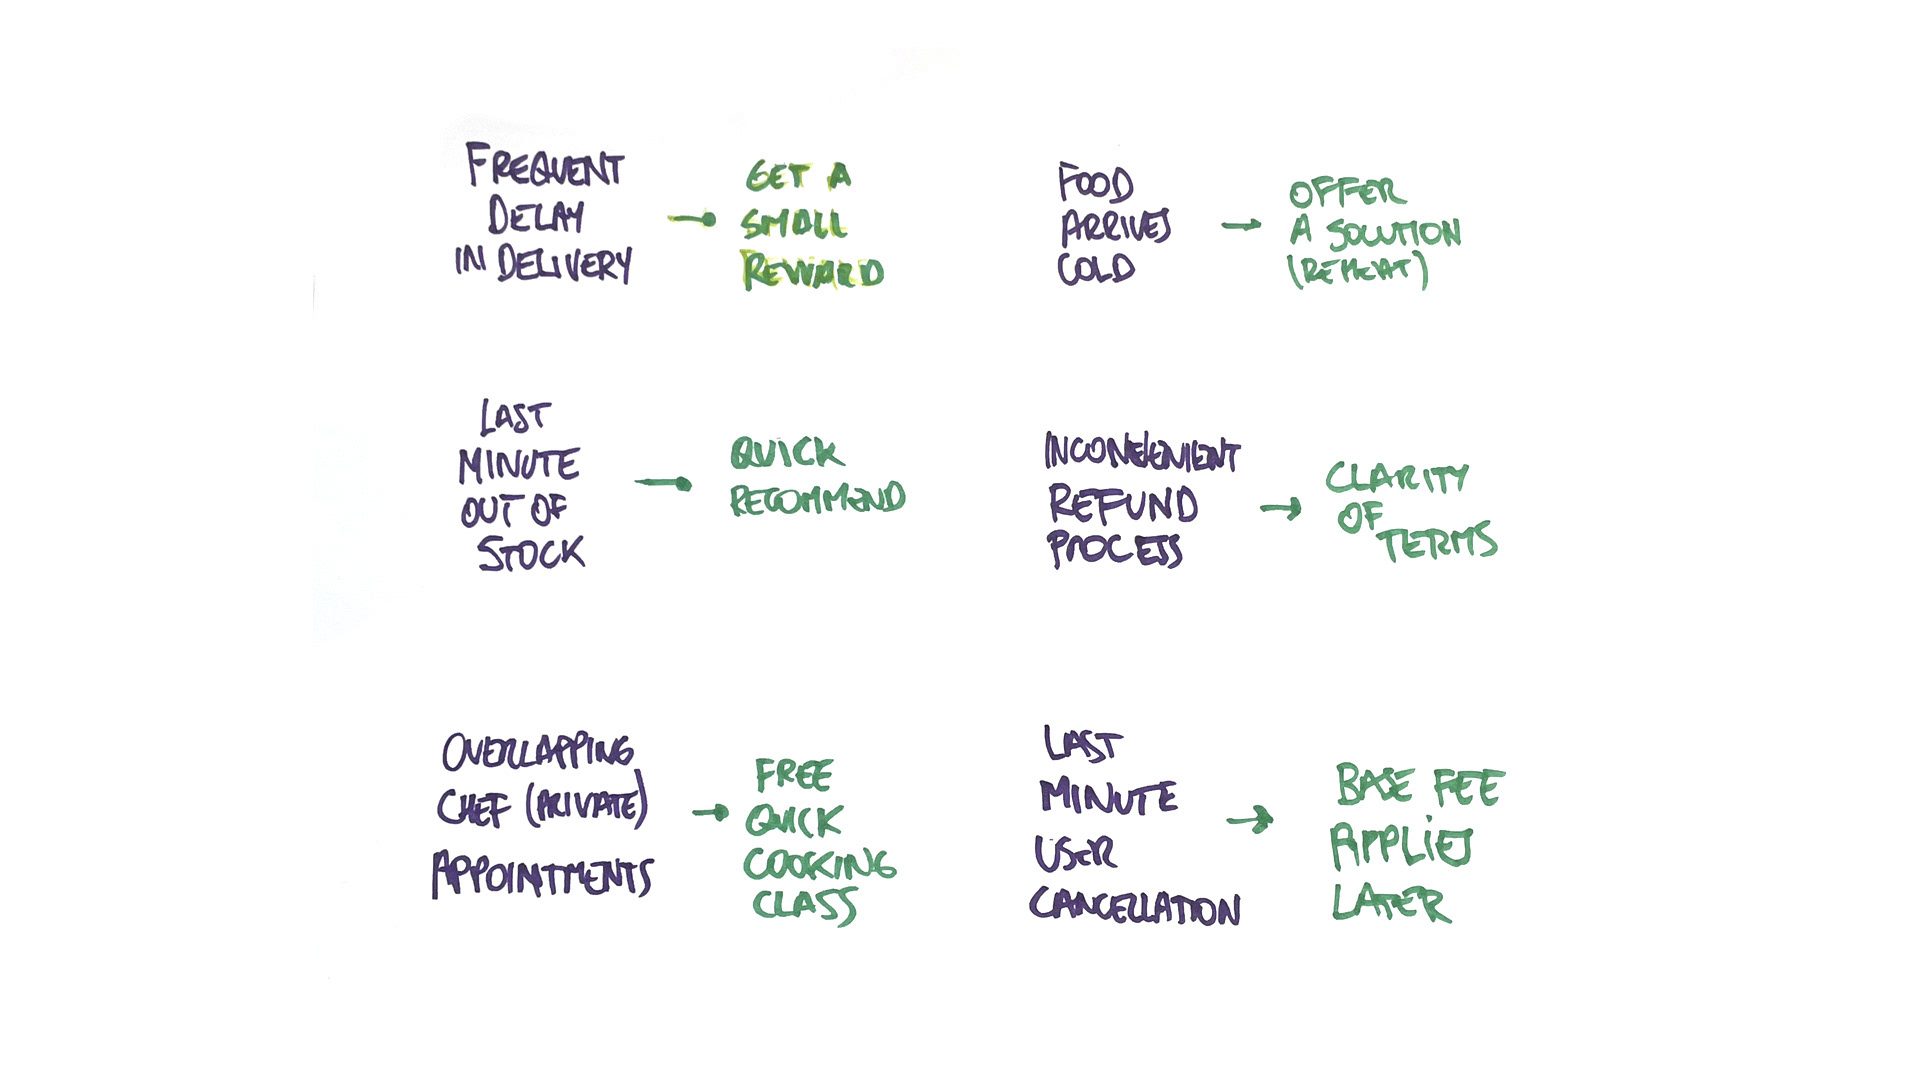 FREQUENT
DELAY
IN DELIVERY
GET A
SMALL
REWARD
FOOD
ARRIVES
COLD
OFFER
A SOLUTION
(REHEAT)
LAST
MINUTE
OUT OF
STOCK
QUICK
RECOMMEND
INCONVENIENT
REFUND
PROCESS
CLARITY
OF
TERMS
OVERLAPPING
CHEF (PRIVATE)
APPOINTMENTS
FREE
QUICK
COOKING
CLASS
LAST
MINUTE
USER
CANCELLATION
BASE FEE
APPLIES
LATER